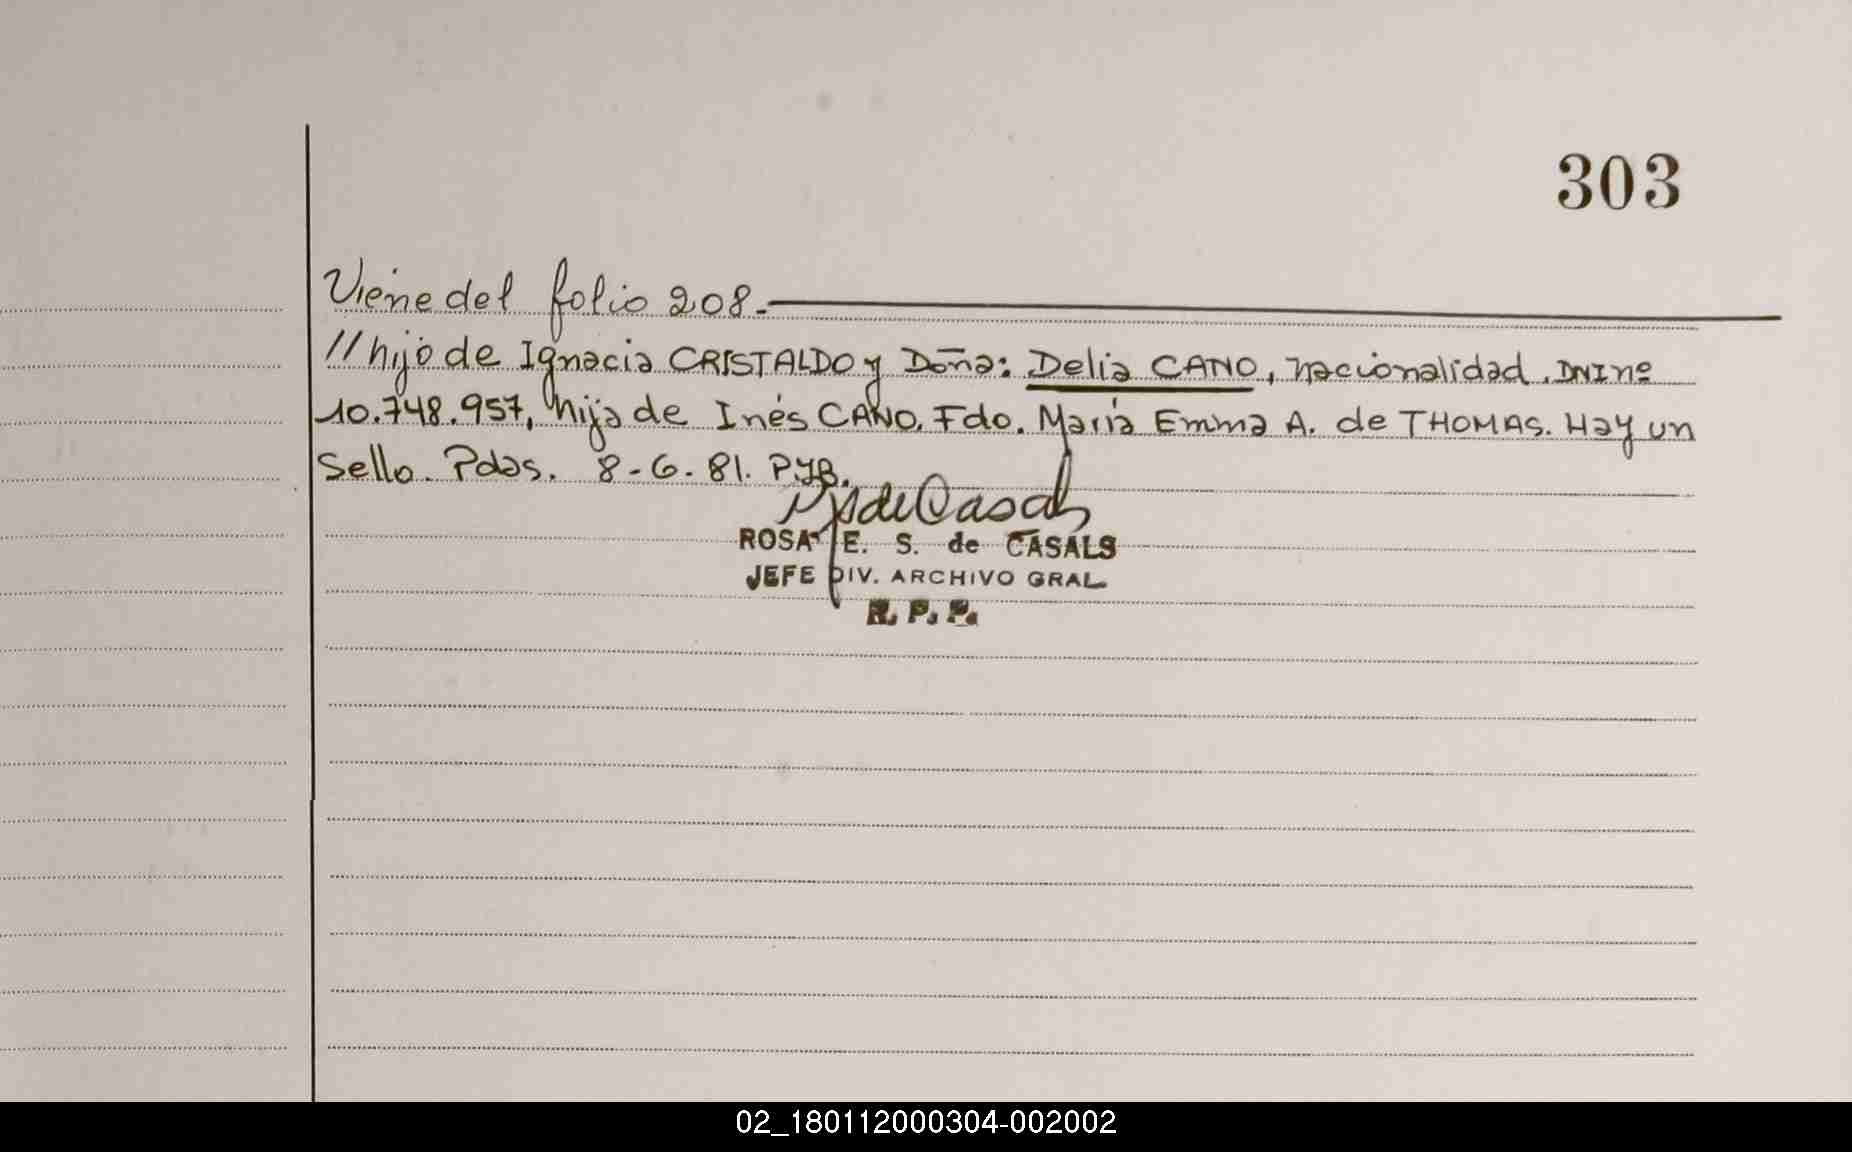 303
Viene del folio 208.-
//hijo de Ignacia CRISTALDO y Doña: Delia CANO, nacionalidad. DNI nº
10.748.957, hija de Inés CANO. Fdo. María Emma A. de THOMAS. Hay un
Sello. Pdas. 8-6-81. PYB.
ROSA E. S. de CASALS
JEFE DIV. ARCHIVO GRAL.
R. P. P.
02_180112000304-002002